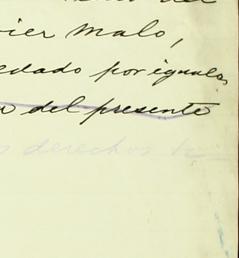 del
vier Malo,
edado por iguales
a del presente
s derechos h